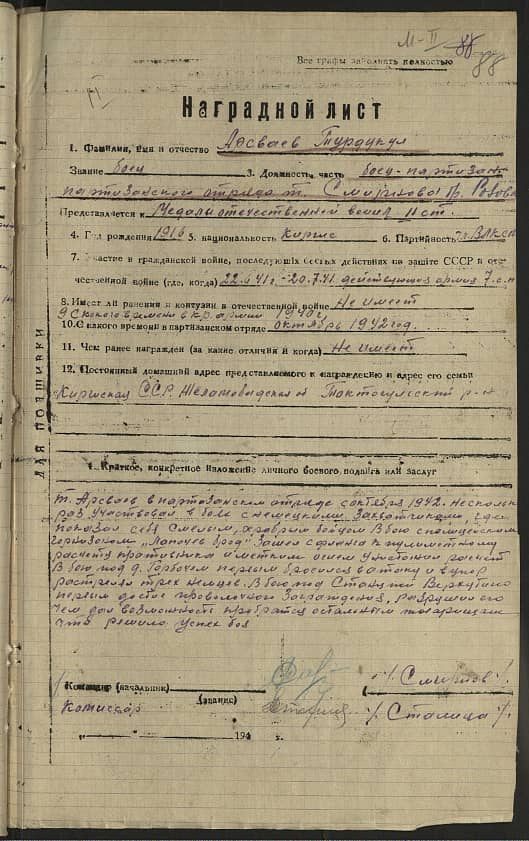 М-II 88
88
Все графы заполнять полностью
Наградной лист
1. Фамилия, имя и отчество Арсваев Турдукул
Звание боец 3. Должность, часть боец-партизан
партизанского отряда т. Смирнова
Представляется к Медали отечественной войны II ст.
4. Год рождения 1916 5. национальность Киргис 6. Партийность ВЛКСМ
7. Участие в гражданской войне, последующих боевых действиях по защите СССР и оте-
чественной войне (где, когда) 22.6.41г-20.7.41 действующая армия
8. Имеет ли ранения и контузии в отечественной войне Не имеет
9 С какого времени в кр. армии 1940г
10. С какого времени в партизанском отряде октябрь 1942 год.
11. Чем ранее награжден (за какие отличия и когда) Не имеет
12. Постоянный домашний адрес представляемого к награждению и адрес его семьи
Киргиская ССР. Желалобадская об Токтогульский р-н
ДЛЯ ПОДШИВКИ
1. Краткое, конкретное изложение личного боевого подвига или заслуг
т. Арсваев в партизанском отряде с октября 1942. Несколько
раз участвовал в боях с немецкими захватчиками, где
показал себя смелым, храбрым бойцом. В бою с полицейским
гарнизоном зашел с фланга к пулеметному
расчету противника и метким огнем уничтожил расчет
В бою под д. Горбачем первым бросился в атаку и в упор
растрелял трех немцев. В бою под Станции
первым достиг проволочного заграждения, разрушил его
чем дал возможность пробратся остальным товарищам
что решило успех боя
Командир (начальник) (Смирнов)
(звание)
Комиссар
194 г.